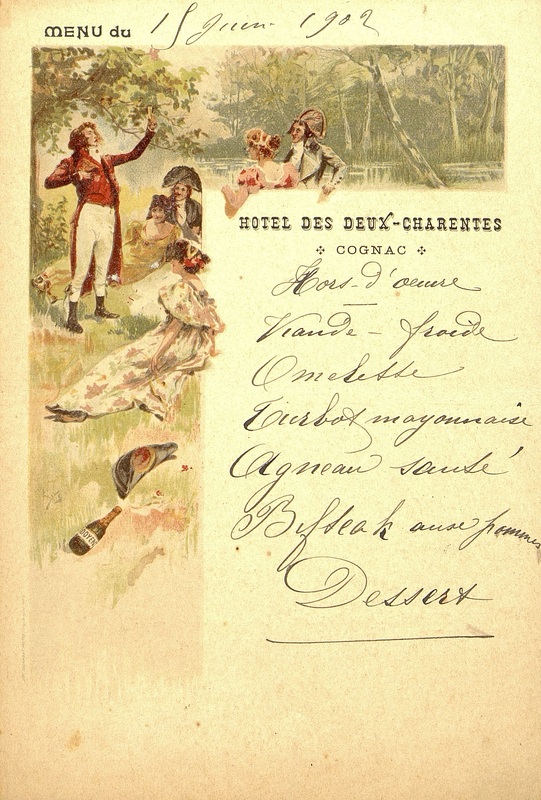 MENU du 15 Juin 1902
HOTEL DES DEUX-CHARENTES
COGNAC
Hors-d'oeuvre
Viande-froide
Omelette
Turbot mayonnaise
Agneau sauté
Bifteak aux pommes
Dessert